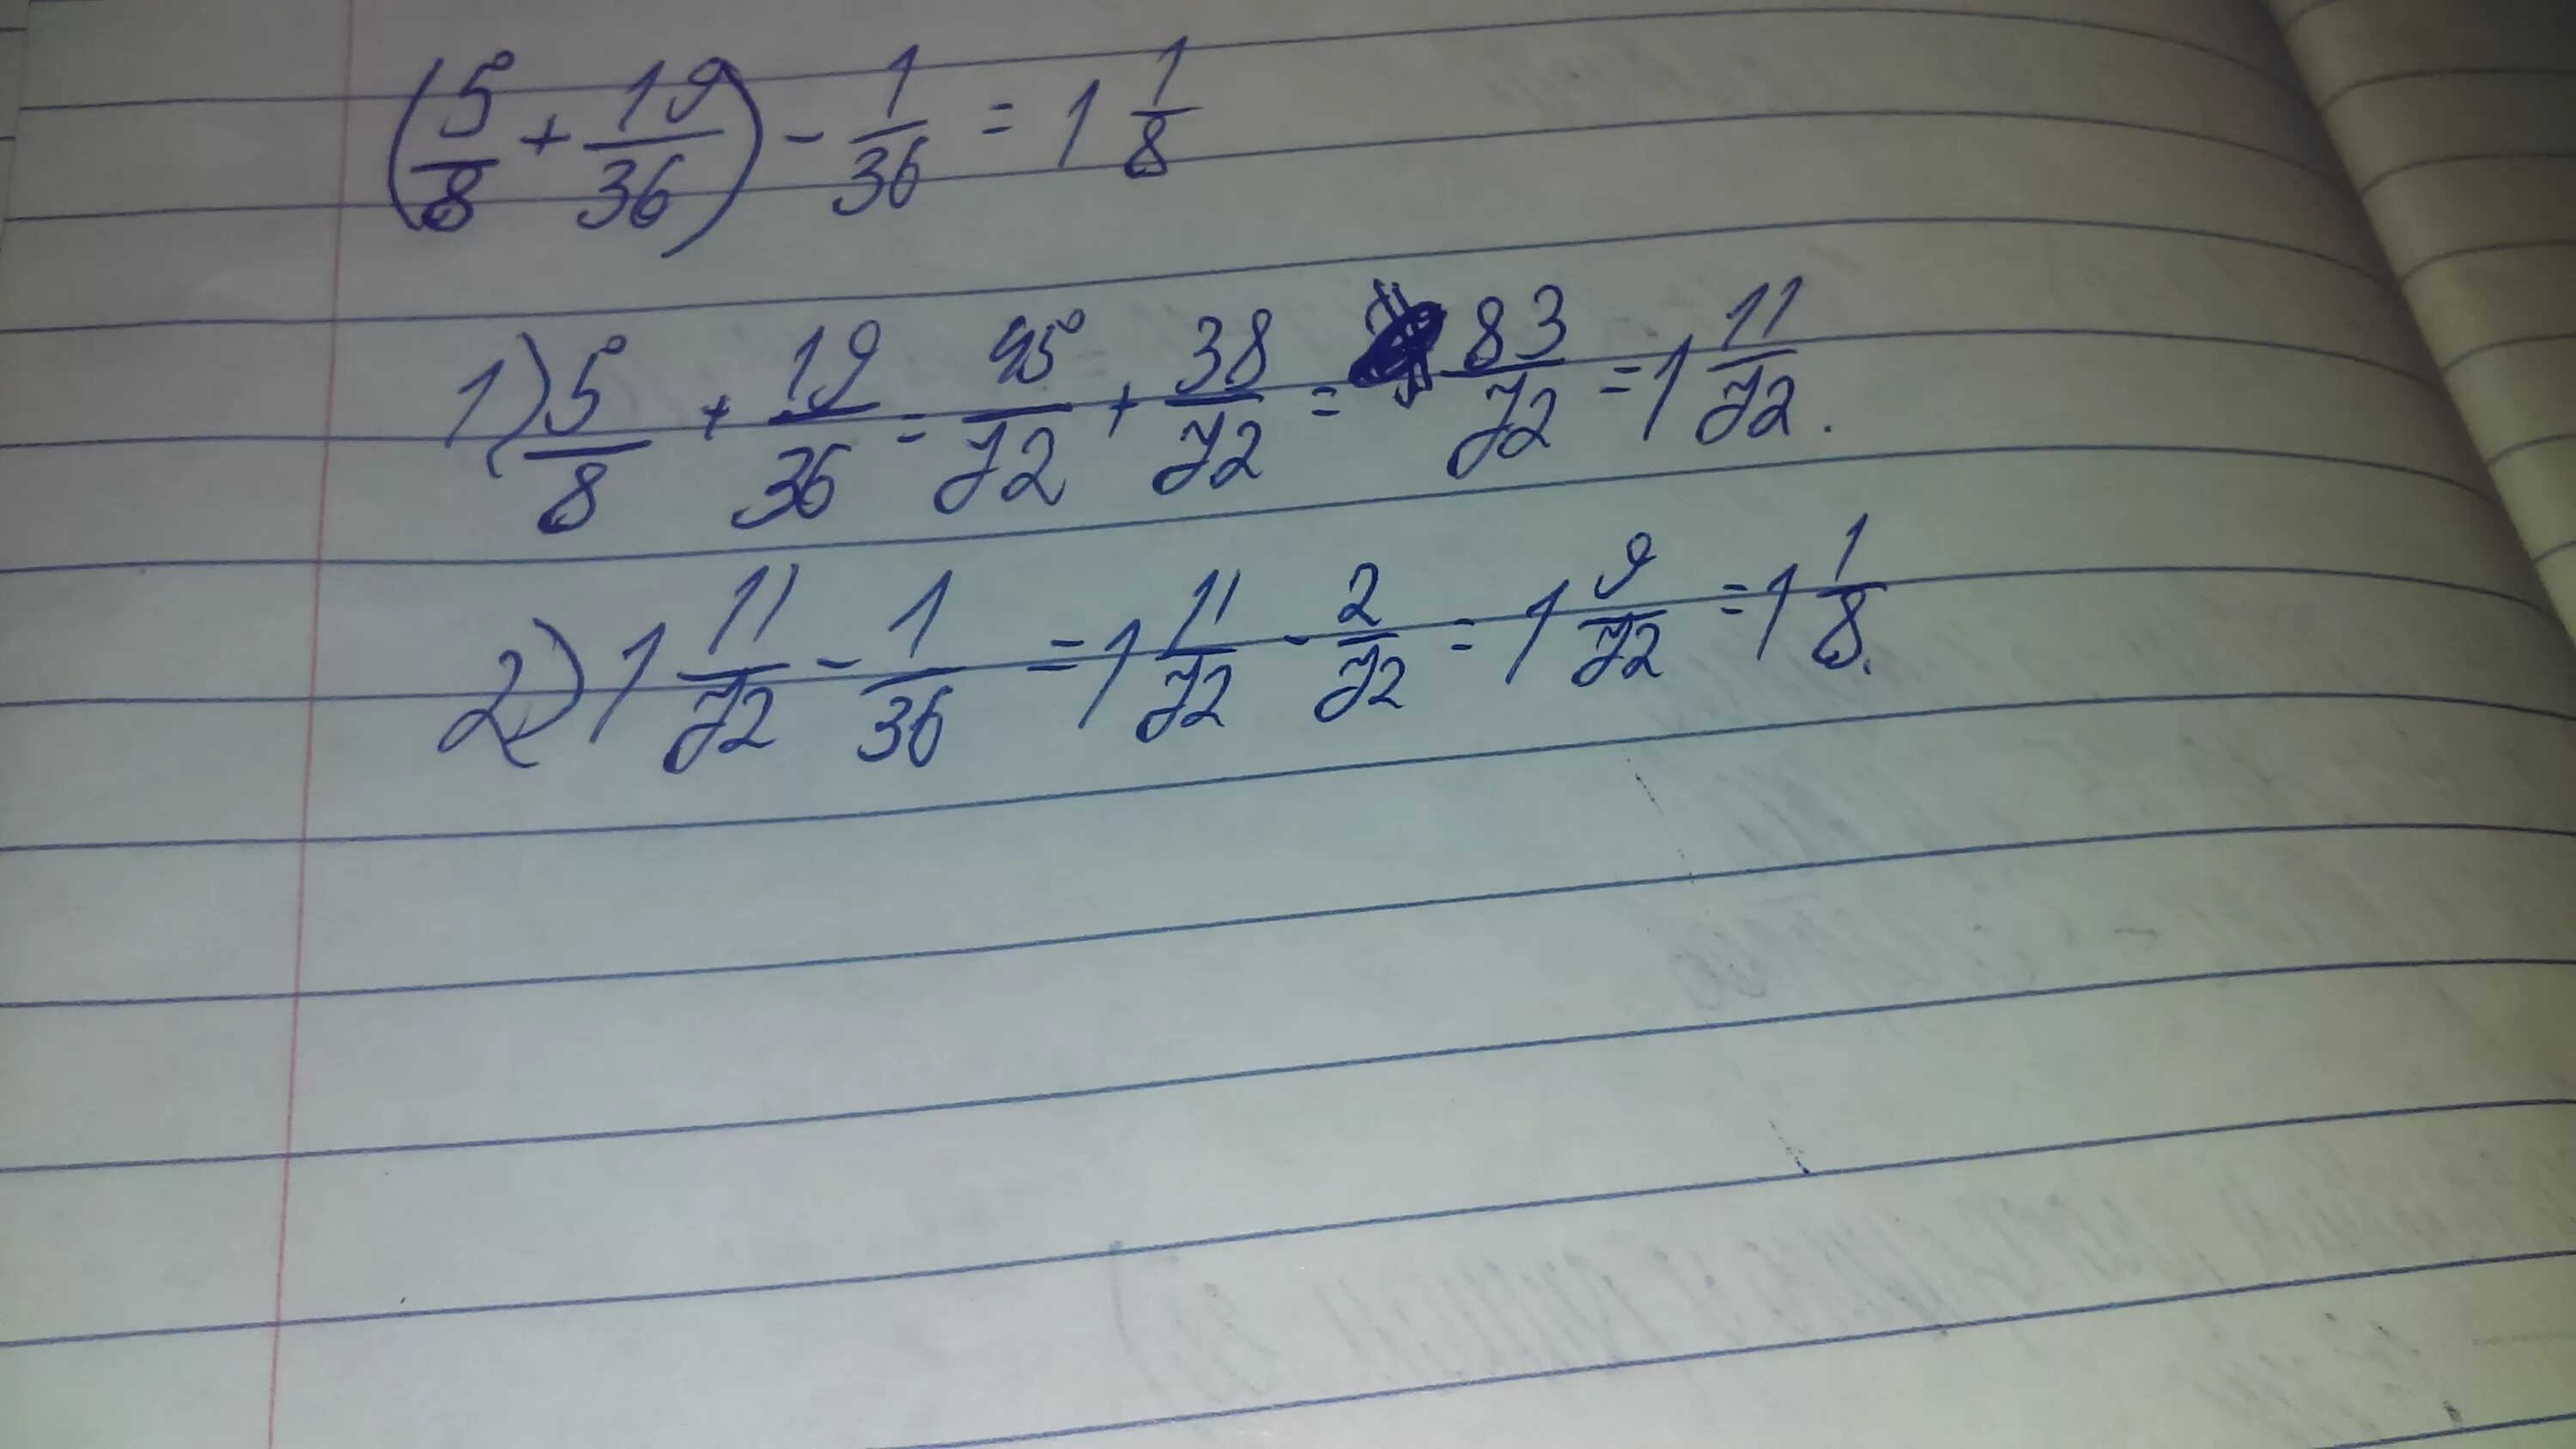 (5/8 + 19/36) - 1/36 = 1 1/8
1) 5/8 + 19/36 = 45/72 + 38/72 = 83/72 = 1 11/72.
2) 1 11/72 - 1/36 = 1 11/72 - 2/72 = 1 9/72 = 1 1/8.